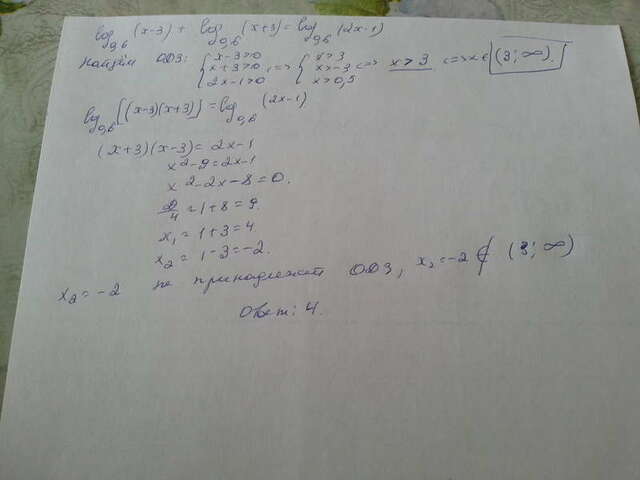 log₀,₆ (x-3) + log₀,₆ (x+3) = log₀,₆ (2x-1)
Найдём ОДЗ: { x-3>0 x+3>0, 2x-1>0 <=> { x>3 x>-3 x>0,5 <=> x>3 <=> x∈ (3; ∞).
log₀,₆ [(x-3)(x+3)] = log₀,₆ (2x-1)
(x+3)(x-3) = 2x-1
x²-9=2x-1
x²-2x-8=0.
D/4 = 1+8=9.
x₁ = 1+3=4
x₂ = 1-3=-2.
x₂=-2 не принадлежит ОДЗ, x₂=-2 ∉ (3; ∞)
Ответ: 4.